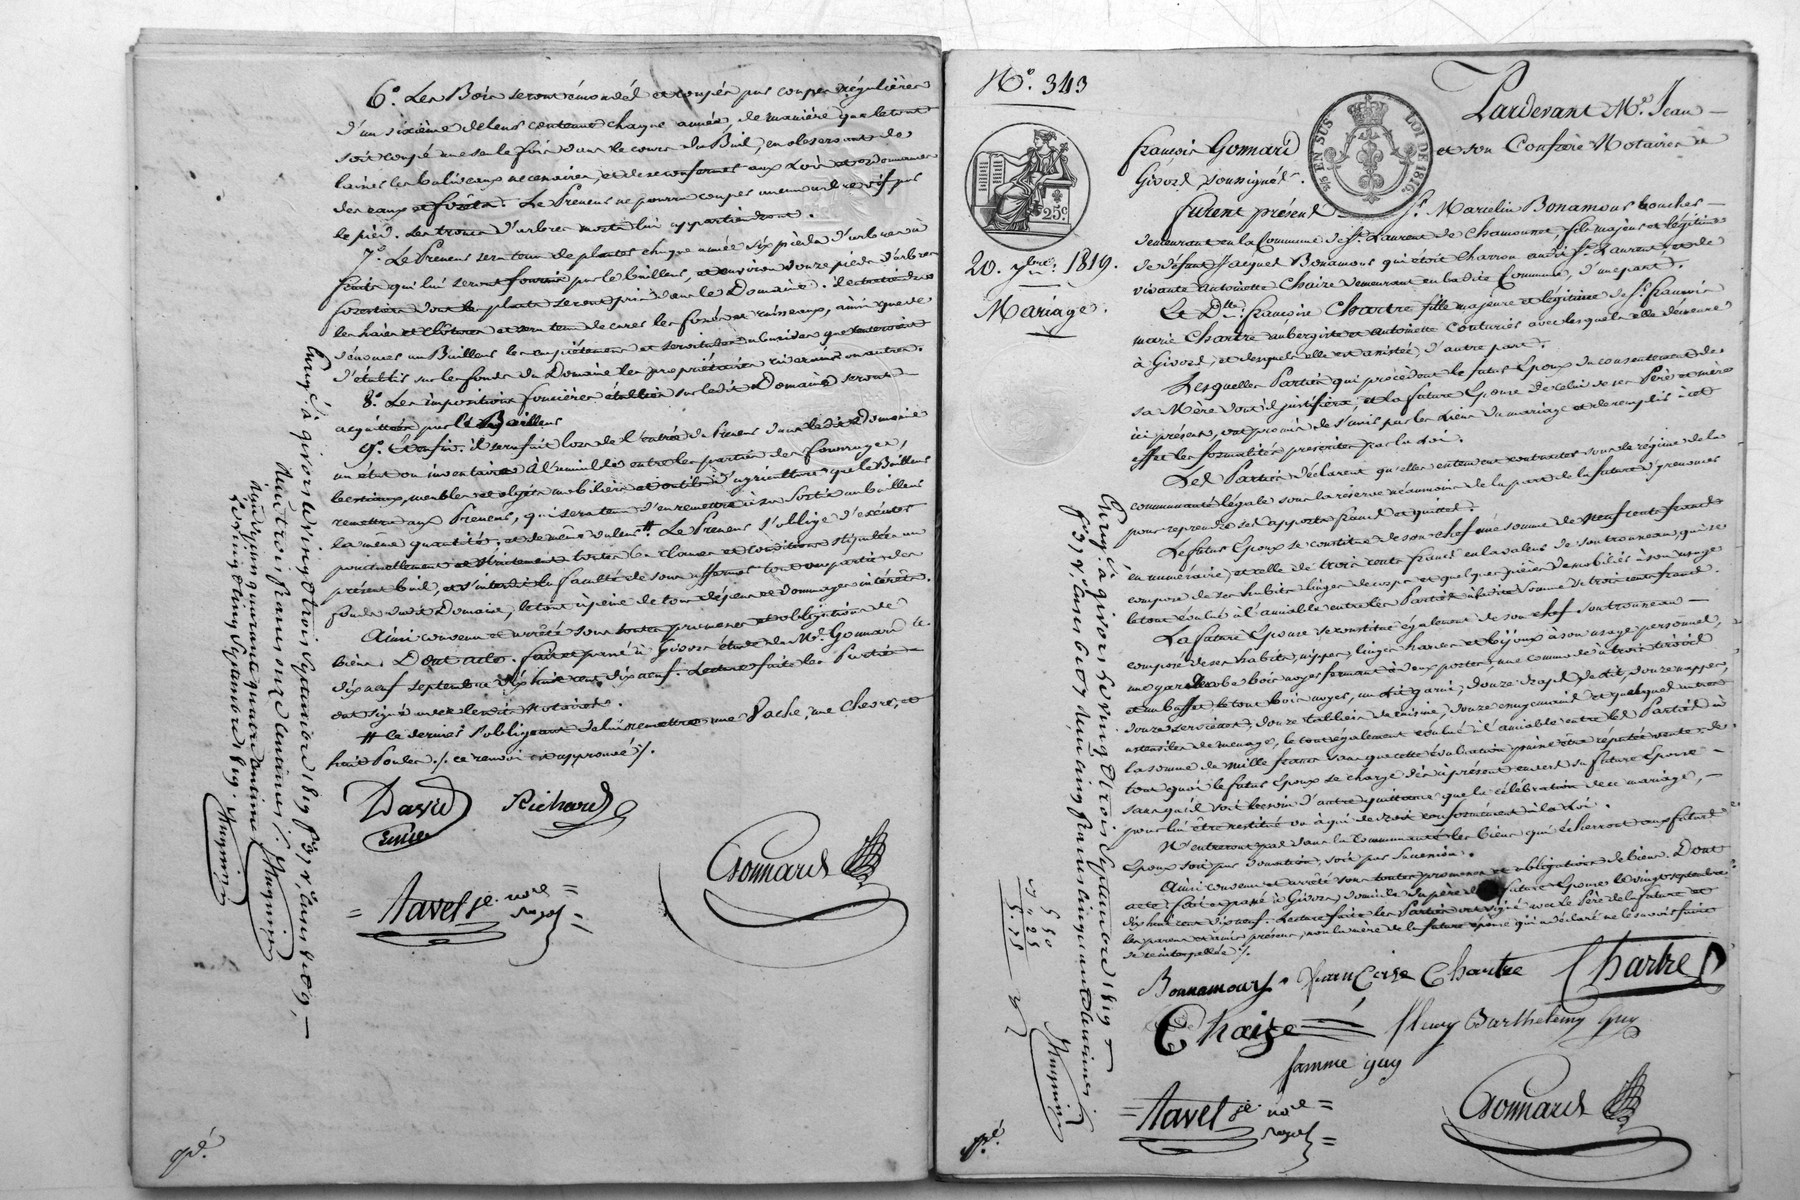 6.° Les Bois seront émondés et coupés par coupes régulières
d'un sixième de leur contenue chaque année, de manière que le tout
soit coupé une seule fois dans le cours du Bail, en observant de
laisser les baliveaux nécessaires, et de se conformer aux Lois et ordonnances
des eaux et forêts. Le Preneur ne pourra couper aucun arbre vif par
le pied. Les troncs d'arbres morts lui appartiendront.
7.° Le Preneur sera tenu de planter chaque année six pieds d'arbres à
fruits qui lui seront fournis par le bailleur, et environ douze pieds d'arbres
forestiers dont les plants seront pris dans le Domaine. il entretiendra
les haies et clôtures et sera tenu de curer les fossés et ruisseaux, ainsi que de
dénoncer au Bailleur les empiètements et servitudes nuisibles que tenteroient
d'établir sur les fonds du Domaine les propriétaires riverains ou autres.
8.° Les impositions foncières établies sur le dit Domaine seront
acquittées par le Bailleur
9.° Et enfin il sera fait lors de l'entrée du Preneur dans le dit Domaine
un état ou inventaire à l'amiable entre les parties des fourrages,
bestiaux, meubles et objets mobiliers et outils d'agriculture que le Bailleur
remettra aux Preneur, qui sera tenu d'en remettre à sa sortie au bailleur
la même quantité, et de même valeur # Le Preneur s'oblige d'exécuter
ponctuellement et strictement toutes les clauses et conditions stipulées au
présent bail, et s'interdit la faculté de sous affermer tout ou partie des
fonds du dit Domaine, le tout à peine de tous dépens et dommages intérêts.
Ainsi convenu et arrêté sous toutes promesses et obligations de
biens. Dont acte. fait et passé à Givors étude du M.e Gonnard le
dix neuf septembre dix huit cent dix neuf. Lecture faite les Parties
ont signé avec les dits Notaires.
# ce dernier s'obligeant de lui remettre une Vache, une Chevre, et
huit Poules /. ce renvoi est approuvé /.
David Richard
Gonnard
= Tavel j.e no.re =
Enreg. à givors le vingt trois septembre 1819
deux trois francs onze centimes
dixième quarante quatre centimes
Givors le vingt cinq septembre 1819.
N.° 343
Pardevant M.e Jean
françois Gonnard et son Confrère Notaires à
Givord soussignés.
EN SUS LOI DE 1816
25c
20. 7bre. 1819.
Mariage.
furent présens S.r Marcelin Bonamour boucher
demeurant en la Commune de S.t Laurent de Chamousset fils majeur et légitime
de défunt Jacques Bonamour qui étoit Charron audit S.t Laurent, et de
vivante Antoinette Chaize demeurant en la dite Commune, d'une part.
Et D.lle françoise Chartre fille majeure et légitime de S.r françois
marie Chartre aubergiste et Antoinette Couturier avec lesquels elle demeure
à Givord, et desquels elle est assistée, d'autre part.
Lesquelles Parties qui procèdent le futur Epoux du consentement de
sa Mère dont il justifiera, et la future Epouse de celui de ses Père et mère
ici présens, ont promis de s'unir par les liens du mariage et de remplir à cet
effet les formalités prescrites par la Loi.
Les Parties déclarent qu'elles entendent contracter sous le régime de la
communauté légale sous la réserve néanmoins de la part de la future y renoncer
pour reprendre ses apports francs et quittes.
Le futur Epoux se constitue de son chef une somme de Neuf cents francs
en numéraire, et celle de trois cents francs en la valeur de son trousseau, qui se
compose de ses habits linges de corps et quelques pièces de mobiliés à son usage
le tout évalué à l'amiable entre les Parties à la dite somme de trois cents francs.
La future Epouse se constitue également de son chef son trousseau
composé de ses habits, nippes, linges hardes et bijoux à son usage personnel,
une garderobe bois noyer fermant à deux portes, une commode à trois tiroirs
et un buffet le tout bois noyer, un lit garni, douze draps de lit, douze nappes,
douze serviettes, douze tabliers de cuisine, douze essuyemains et quelques autres
ustensiles de menage, le tout également évalué à l'amiable entre les Parties à
la somme de mille francs sans que cette évaluation puisse être réputée vente, de
tout quoi le futur Epoux se charge dès à présent envers sa future Epouse
sans qu'il soit besoin d'autre quittance que la célébration de ce mariage,
pour lui être restitué ou à qui de droit conformément à la Loi.
N'entreront pas dans la communauté les biens qui écherront aux futurs
Epoux soit par donation, soit par succession.
Ainsi convenu et arrêté sous toutes promesses et obligations de biens. Dont
acte. fait et passé à Givors, domicile du père de la future Epouse le vingt septembre
dix huit cent dix neuf. Lecture faite les Parties ont signé avec le Père de la future et
les parens et amis présens, non la mère de la future épouse qui a déclaré ne le savoir faire
de ce interpellée /.
Bonnamour françoise Chartre Chartre
Chaize fleury Barthelemy Guy
famme guy
= Tavel j.e no.re =
Gonnard
Enreg. à givors le vingt trois septembre 1819
5 50
5.75